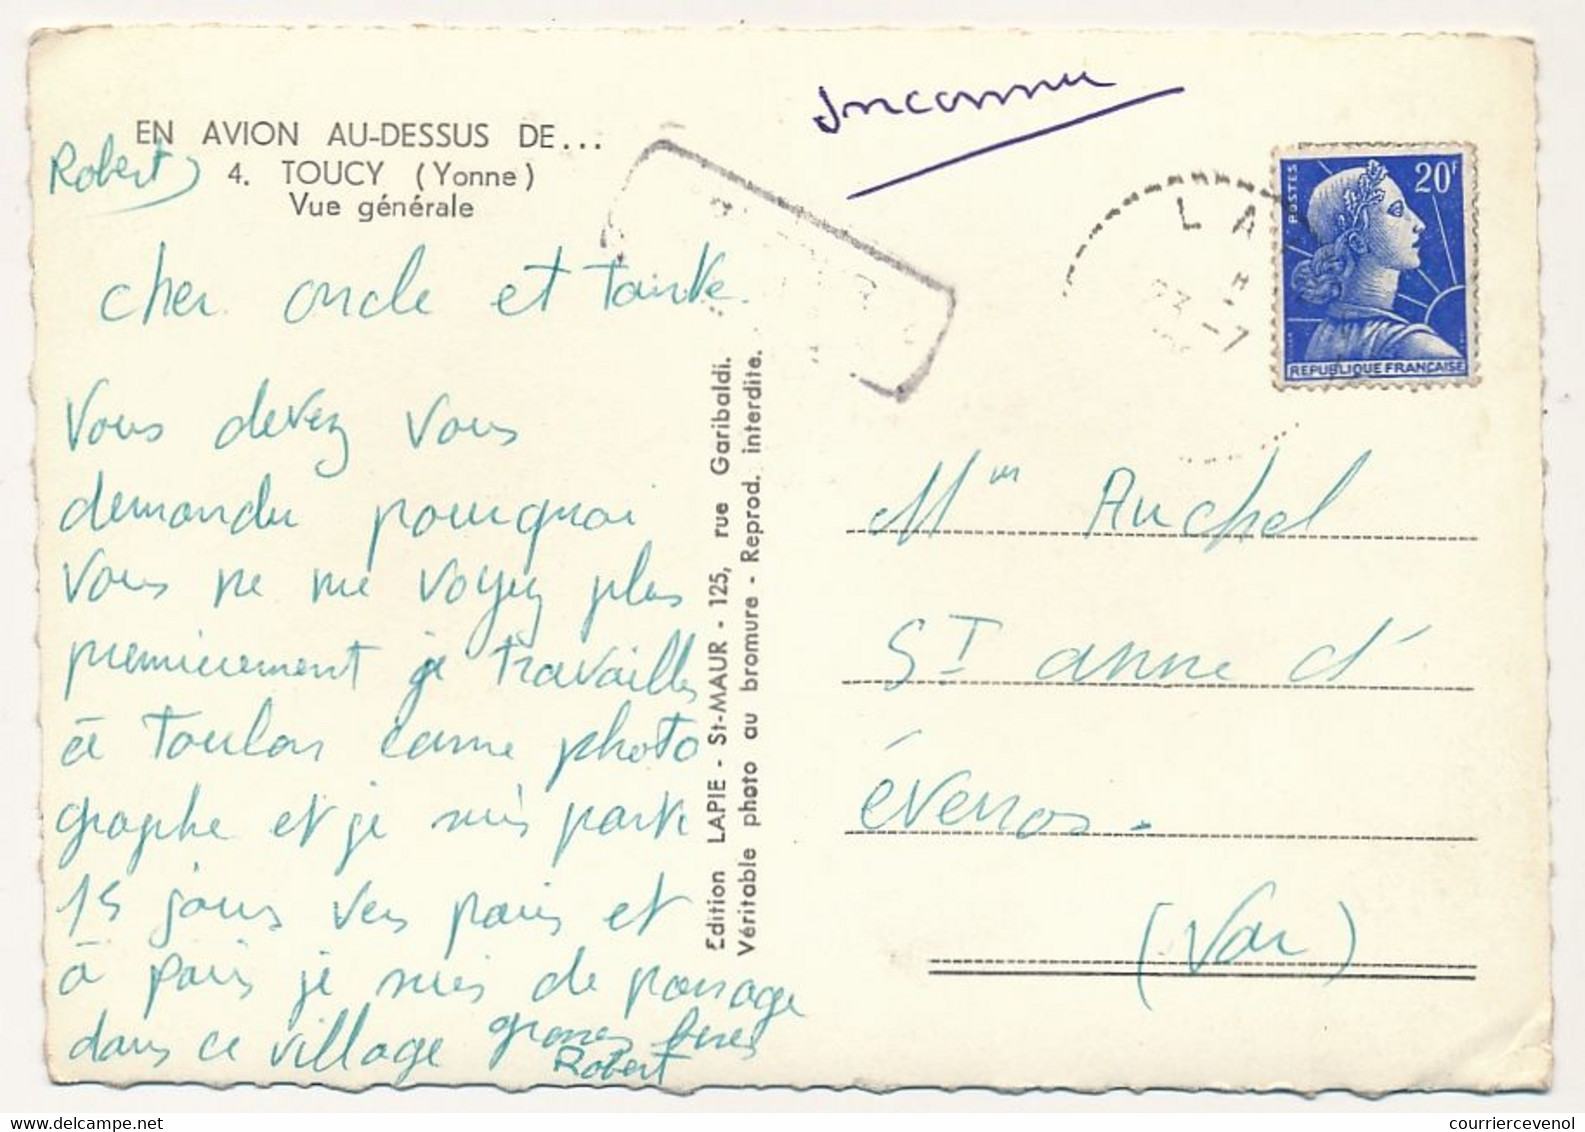 EN AVION AU-DESSUS DE...
4. TOUCY (Yonne)
Vue générale
Robert
cher oncle et tante.
Vous devez vous
demander pourquoi
vous ne me voyez plus
premièrement je travailles
à Toulon comme photo
graphe et je suis parti
15 jours vers paris et
à paris je suis de passage
dans ce village grosses bises
Robert
Edition LAPIE - St-MAUR - 125, rue Garibaldi.
Véritable photo au bromure - Reprod. interdite.
Inconnu
LA
23 -7
POSTES
20F
REPUBLIQUE FRANÇAISE
Auchel
ST anne d'
évenos.
(Var)
courriercevenol.com